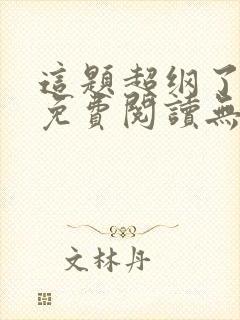 這題超纲了
免費閱讀無
文林丹